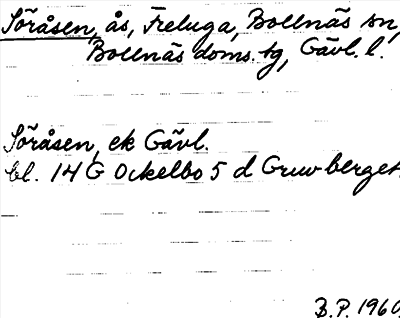 Söråsen, ås, Freluga, Bollnäs sn,
Bollnäs doms. tg, Gävl. l.
Söråsen, ek Gävl.
bl. 14 G Ockelbo 5 d Gruvberget.
B.P. 1960